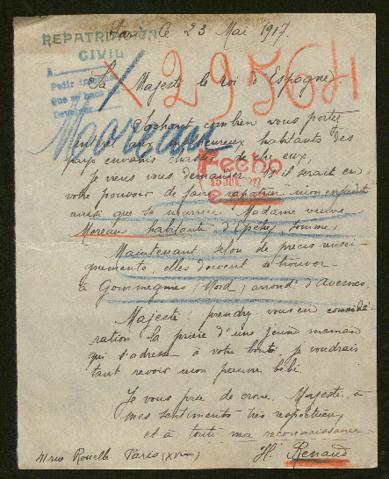 Paris le 23 Mai 1917.
REPATRIACIÓN
CIVIL
A
Pedir
que se haga
X 29564
Sa Majesté le Roi d'Espagne,
Moreau
Sachant combien vous portez
intérêt aux malheureux habitants des
pays envahis chassés de chez eux.
Je viens vous demander s'il serait en
votre pouvoir de faire rapatrier mon enfant
ainsi que sa nourrice, Madame veuve
Moreau habitante d'Epehy, Somme,
Fecho
Maintenant selon de précis rensei-
gnements, elles doivent se trouver
à Gommegnies, Nord, arrond. d'Avesnes.
Majesté: prendrez vous en considé-
ration la prière d'une jeune maman
qui s'adresse à votre bonté. Je voudrais
tant revoir mon pauvre bébé.
Je vous prie de croire, Majesté à
mes sentiments très respectueux
et à toute ma reconnaissance
H. Renaud
41 rue Paris